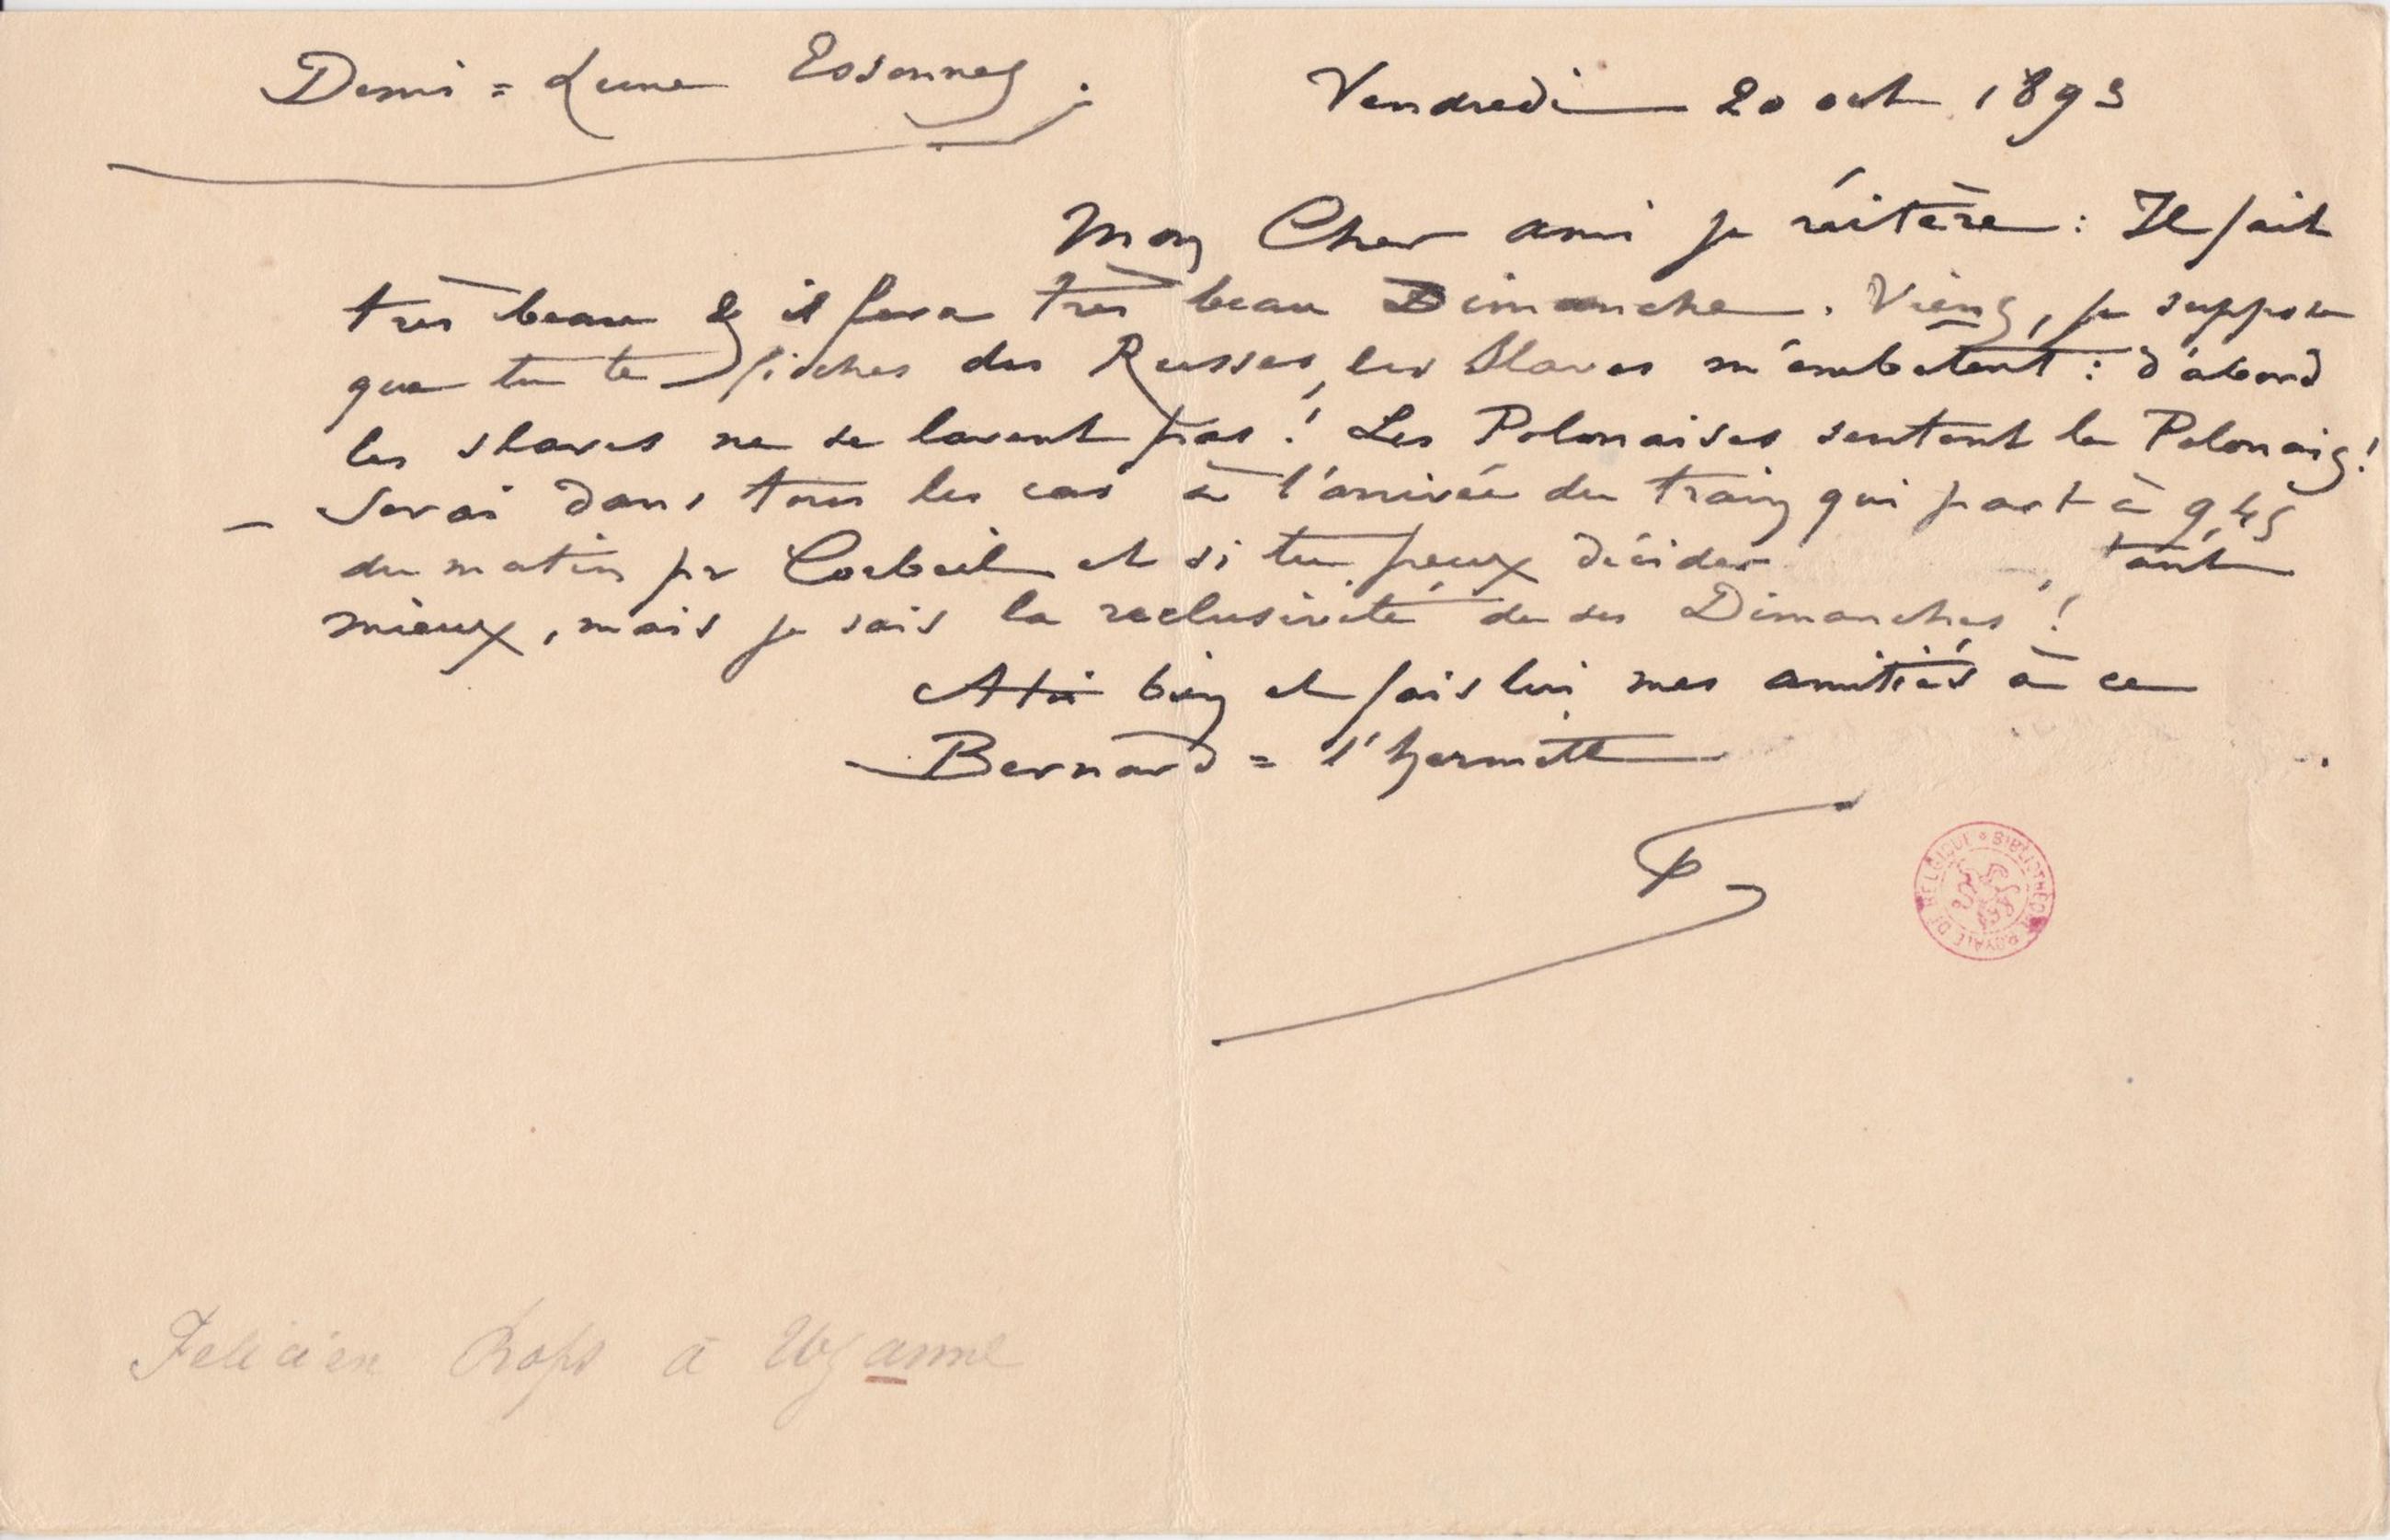 Demi = Lune Essonnes.
Vendredi 20 oct 1893
Mon Cher ami je réitère : Il fait
très beau & il fera très beau Dimanche. Viens, je suppose
que tu te fiches des Russes, les Slaves m'embêtent : d'abord
les slaves ne se lavent pas ! Les Polonaises sentent le Polonais !
– Serai dans tous les cas à l'arrivée du train qui part à 9,45
du matin pr Corbeil et si tu peux décider , tant
mieux, mais je sais la reclusivité de ses Dimanches !
A toi bien et fais lui mes amitiés à ce
Bernard = l'hermitte
BIBLIOTHÈQUE ROYALE DE BELGIQUE
Felicien Rops à Uzanne